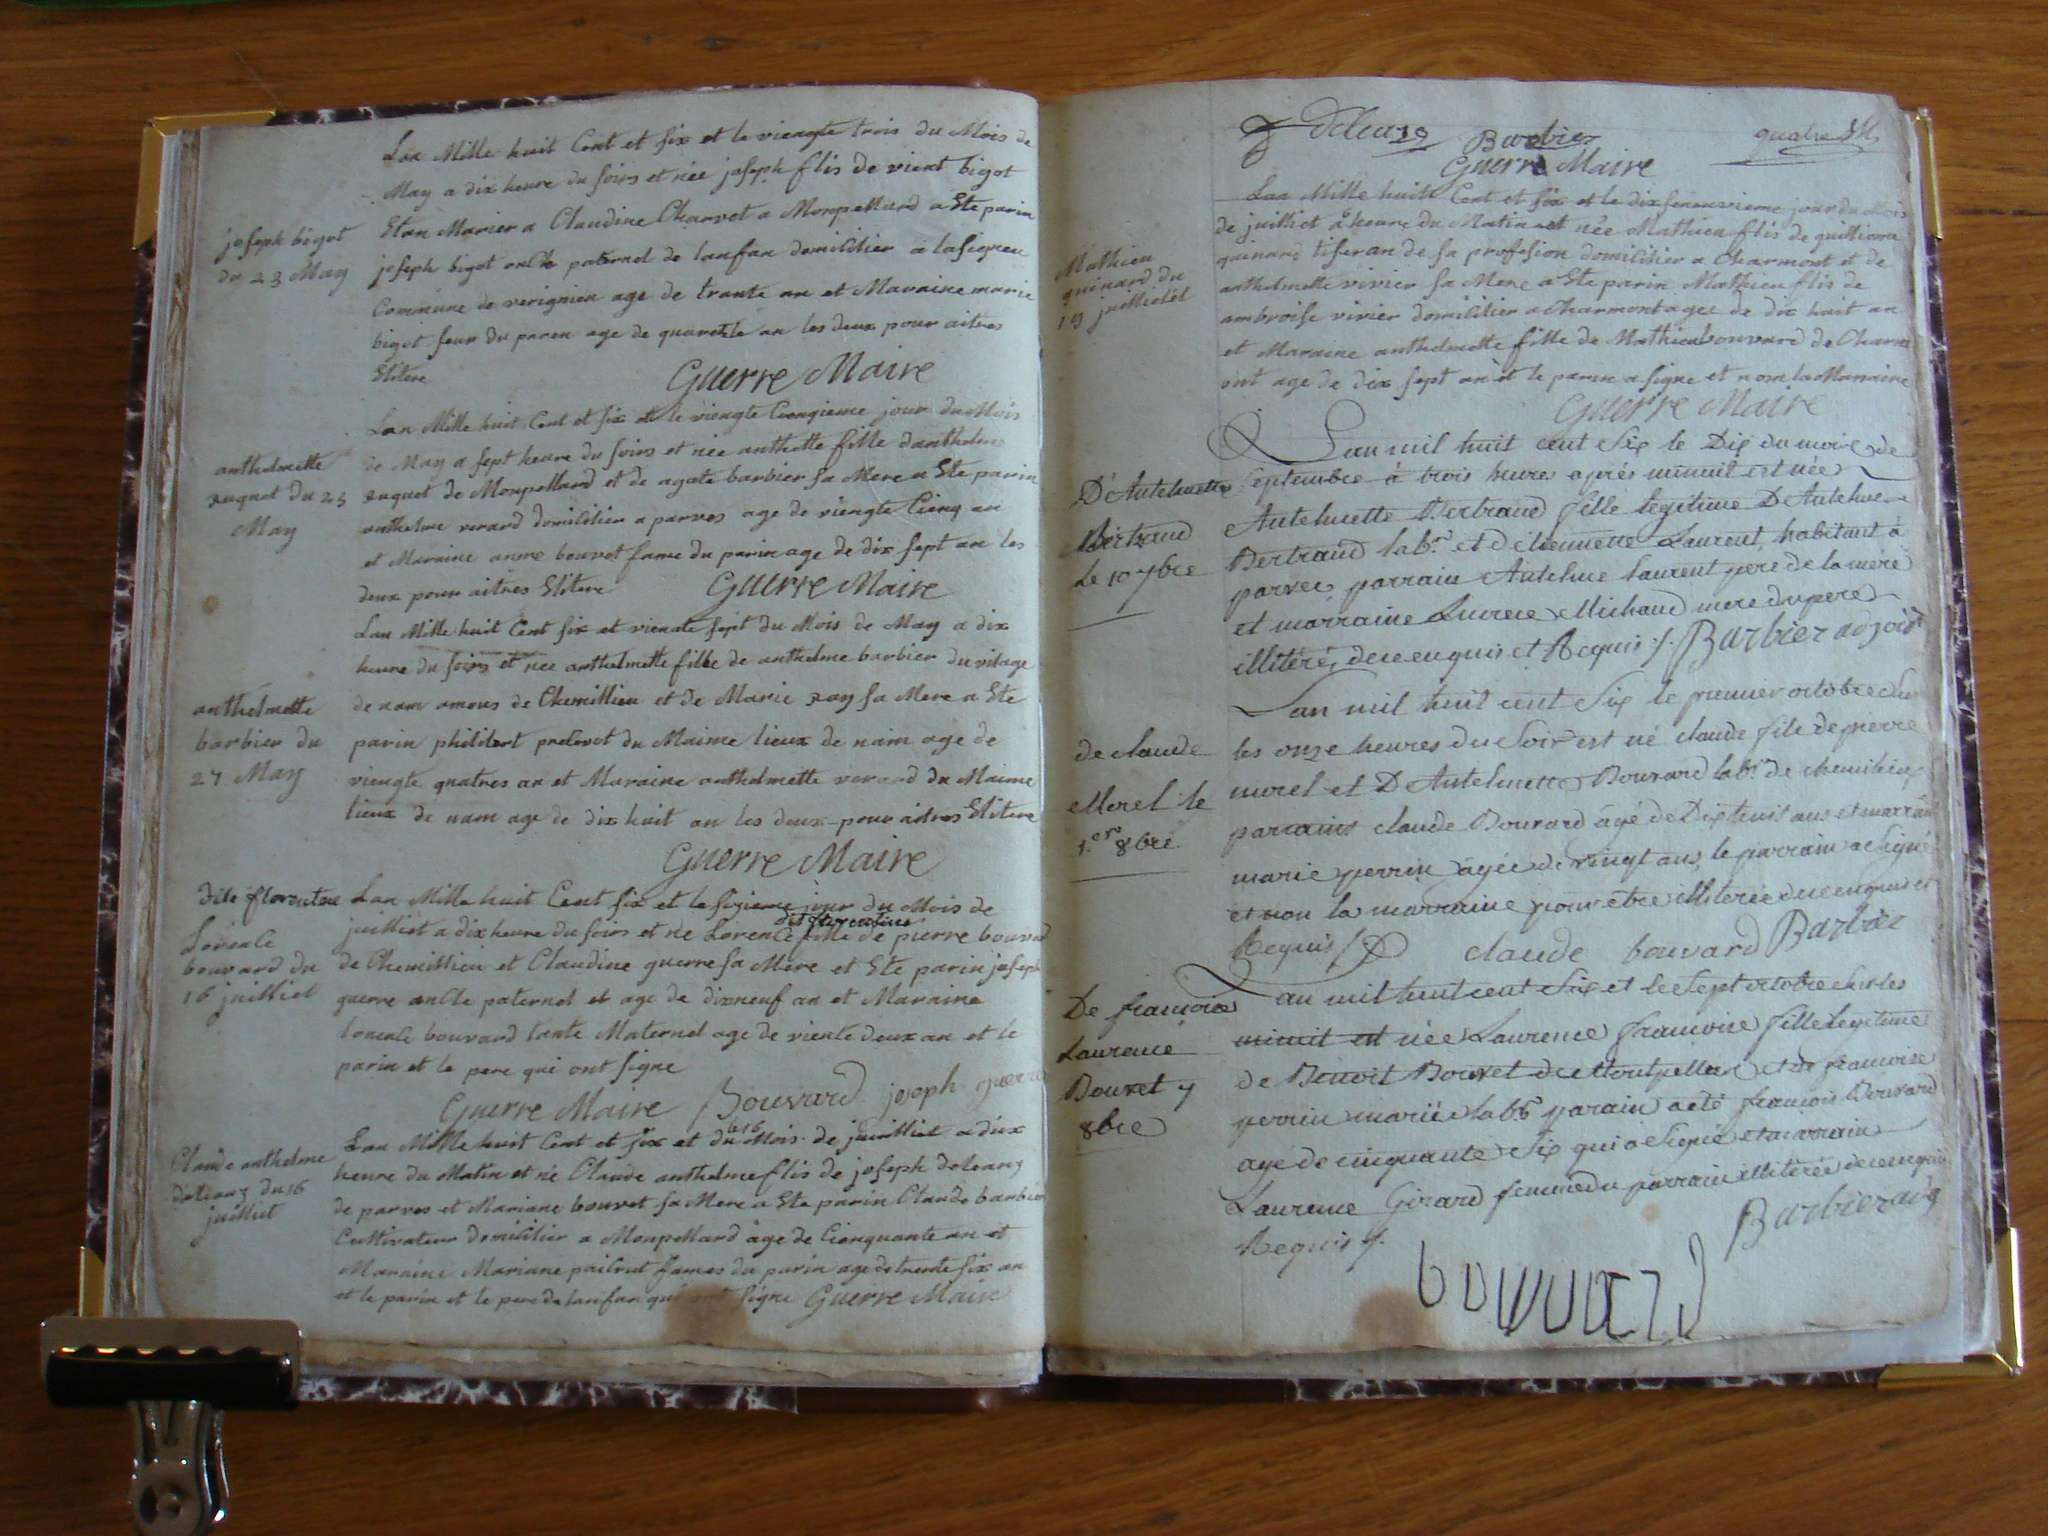 Lan Mille huit Cent et six et le viengte trois du Mois de
May a dix heure du soirs et née joseph flis de vient bigot
Etan Marier a Claudine Charvet a Monpellard a Ete parin
joseph bigot oncle paternel de lanfan domicilier a lasigneu
joseph bigot
du 23 May
Commune de verignien age de trante an et Maraine marie
bigot seur du paren age de quarente an les deux pour aitres
Elitere
Guerre Maire
Lan Mille huit Cent et six et le viengte Ciengieme jour du Mois
de May a sept heure du soirs et née anthelmette fille danthelme
anthelmette
ruguet du 25
May
ruguet de Monpellard et de agate barbier sa Mere a Ete parin
anthelme verard domicilier a parves age de viengte Cienq an
et Maraine anne bouvet fame du parin age de dix sept an les
deux pour aitres Elitere Guerre Maire
Lan Mille huit Cent six et viengte sept du Mois de May a dix
heure du soirs et née anthelmette fille de anthelme barbier du vilage
anthelmette
barbier du
27 May
de nam amous de Chemillieu et de Marie ray sa Mere a Ete
parin philibert du Maime lieux de nam age de
viengte quatres an et Maraine anthelmette verard du Maime
lieux de nam age de dix huit an les deux pour aitres Elitere
Guerre Maire
dite florentine
Lorence
bouvard du
16 juilliet
Lan Mille huit Cent six et le sezieme jour du Mois de
dit florentine
juilliet a dix heure du soirs et née Lorence fille de pierre bouvard
de Chemillieu et Claudine guerre sa Mere et Ete parin joseph
guerre oncle paternel et age de dixneuf an et Maraine
lorence bouvard tante Maternel age de viente deux an et le
parin et le pere qui ont signe
Guerre Maire Bouvard joseph guerre
Claude anthelme
deleaz du 16
juilliet
Lan Mille huit Cent et six et du 16 Mois de juilliet a dix
heure du Matin et né Claude anthelme flis de joseph deleaz
de parves et Mariane bouvet sa Mere a Ete parin Claude barbier
Cultivateur domicilier a Monpellard âge de Cienquante an et
Maraine Mariane pailrut fames du parin age de trente six an
et le parin et le pere de lanfan qui ont signe Guerre Maire
Barbier
Guerre Maire
Lan Mille huit Cent et six et le dix jour du Mois
de juilliet heure du Matin et née Mathieu flis de
Mathieu
quinard du
19 juilliet
quinard tiseran de sa profesion domicilier a Charmont et de
anthelmette vivier sa Mere a Ete parin Mathieu flis de
ambroise vivier domicilier a Charmont agee de dix huit an
et Maraine anthelmette fille de Mathieu bouvard de Charm
ont age de dix sept an et le parin a signe et nom la Maraine
Guerre Maire
L'an mil huit cent Six le Dix du mois de
D'Antelmette
Bertrand
Le 10 7bre
Septembre à trois heures après minuit est née
Antelmette Bertrand fille legitime D'Antelme
Bertrand labr et D'étiennette Laurent, habitant à
parves, parrain Antelme laurent pere de la mère
et marraine Lucrece Michaud mere du pere
illitérés, de ce enquis et Requis ./. Barbier adjoint
L'an mil huit cent Six le premier octobre sur
de claude
Morel le
1.er 8bre
les onze heures du Soir est né claude fils de pierre
morel et D'Antelmette Bouvard labr de chemilieu
parrains claude Bouvard âgé de Dix huit ans et marraine
marie perrin âgée de vingt ans, le parrain a Signé
et non la marraine pour être illiterée de ce enquise et
Requis ./. claude bouvard Barbier
L'an mil huit cent Six et le Sept octobre sur les
De francoise
Laurence
Bouvet 7
8bre
minuit est née Laurence francoise fille legitime
de Benoit Bouvet de Montpellar et de francoise
perrin mariés labrs parain a eté francois Bouvard
agé de cinquante Six qui a Signé et marraine
Laurence Girard femme du parrain illiterée de ce enquise
Requis ./. Barbier adj
bouvard